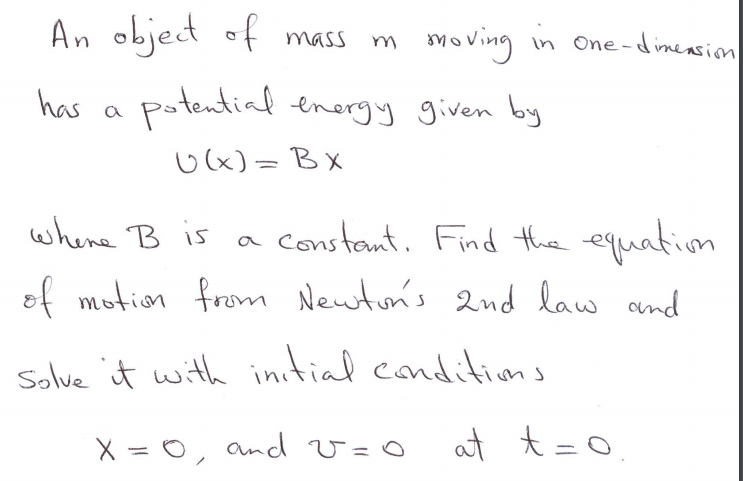 An object of mass m moving in one-dimension
has a potential energy given by
U(x) = Bx
where B is a constant. Find the equation
of motion from Newton's 2nd law and
solve it with initial conditions
x = 0, and v = 0 at t = 0.